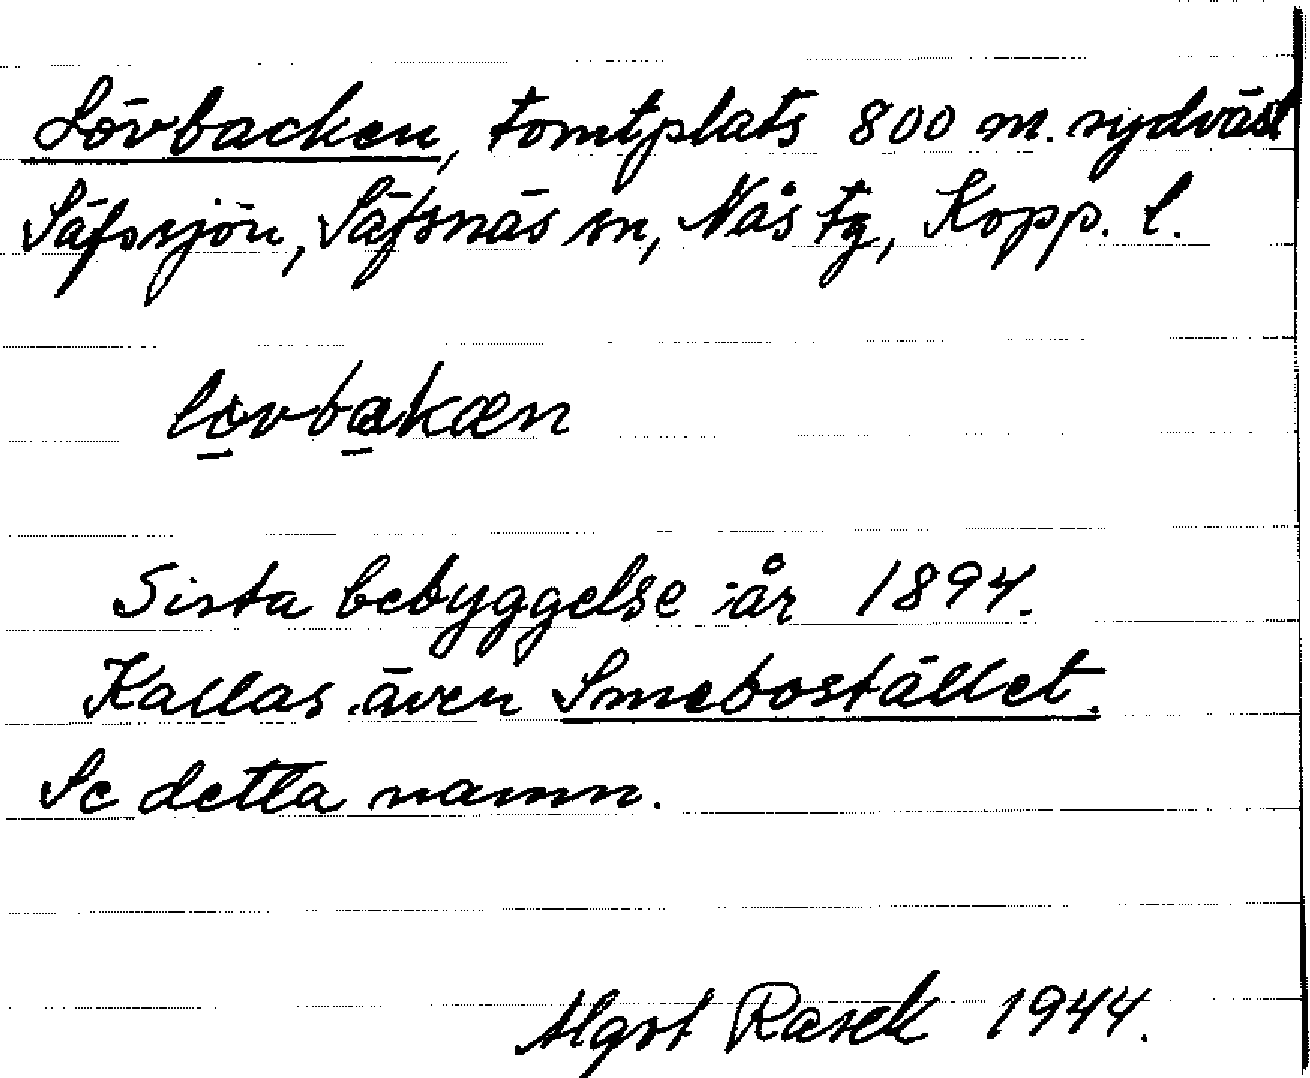 Lövbacken, tomtplats 800 m. sydväst
Säfssjön, Säfsnäs sn, Nås tg, Kopp. l.
lövbakæn
Sista bebyggelse år 1894.
Kallas även Smebostället.
Se detta namn.
Algot Rasek 1944.